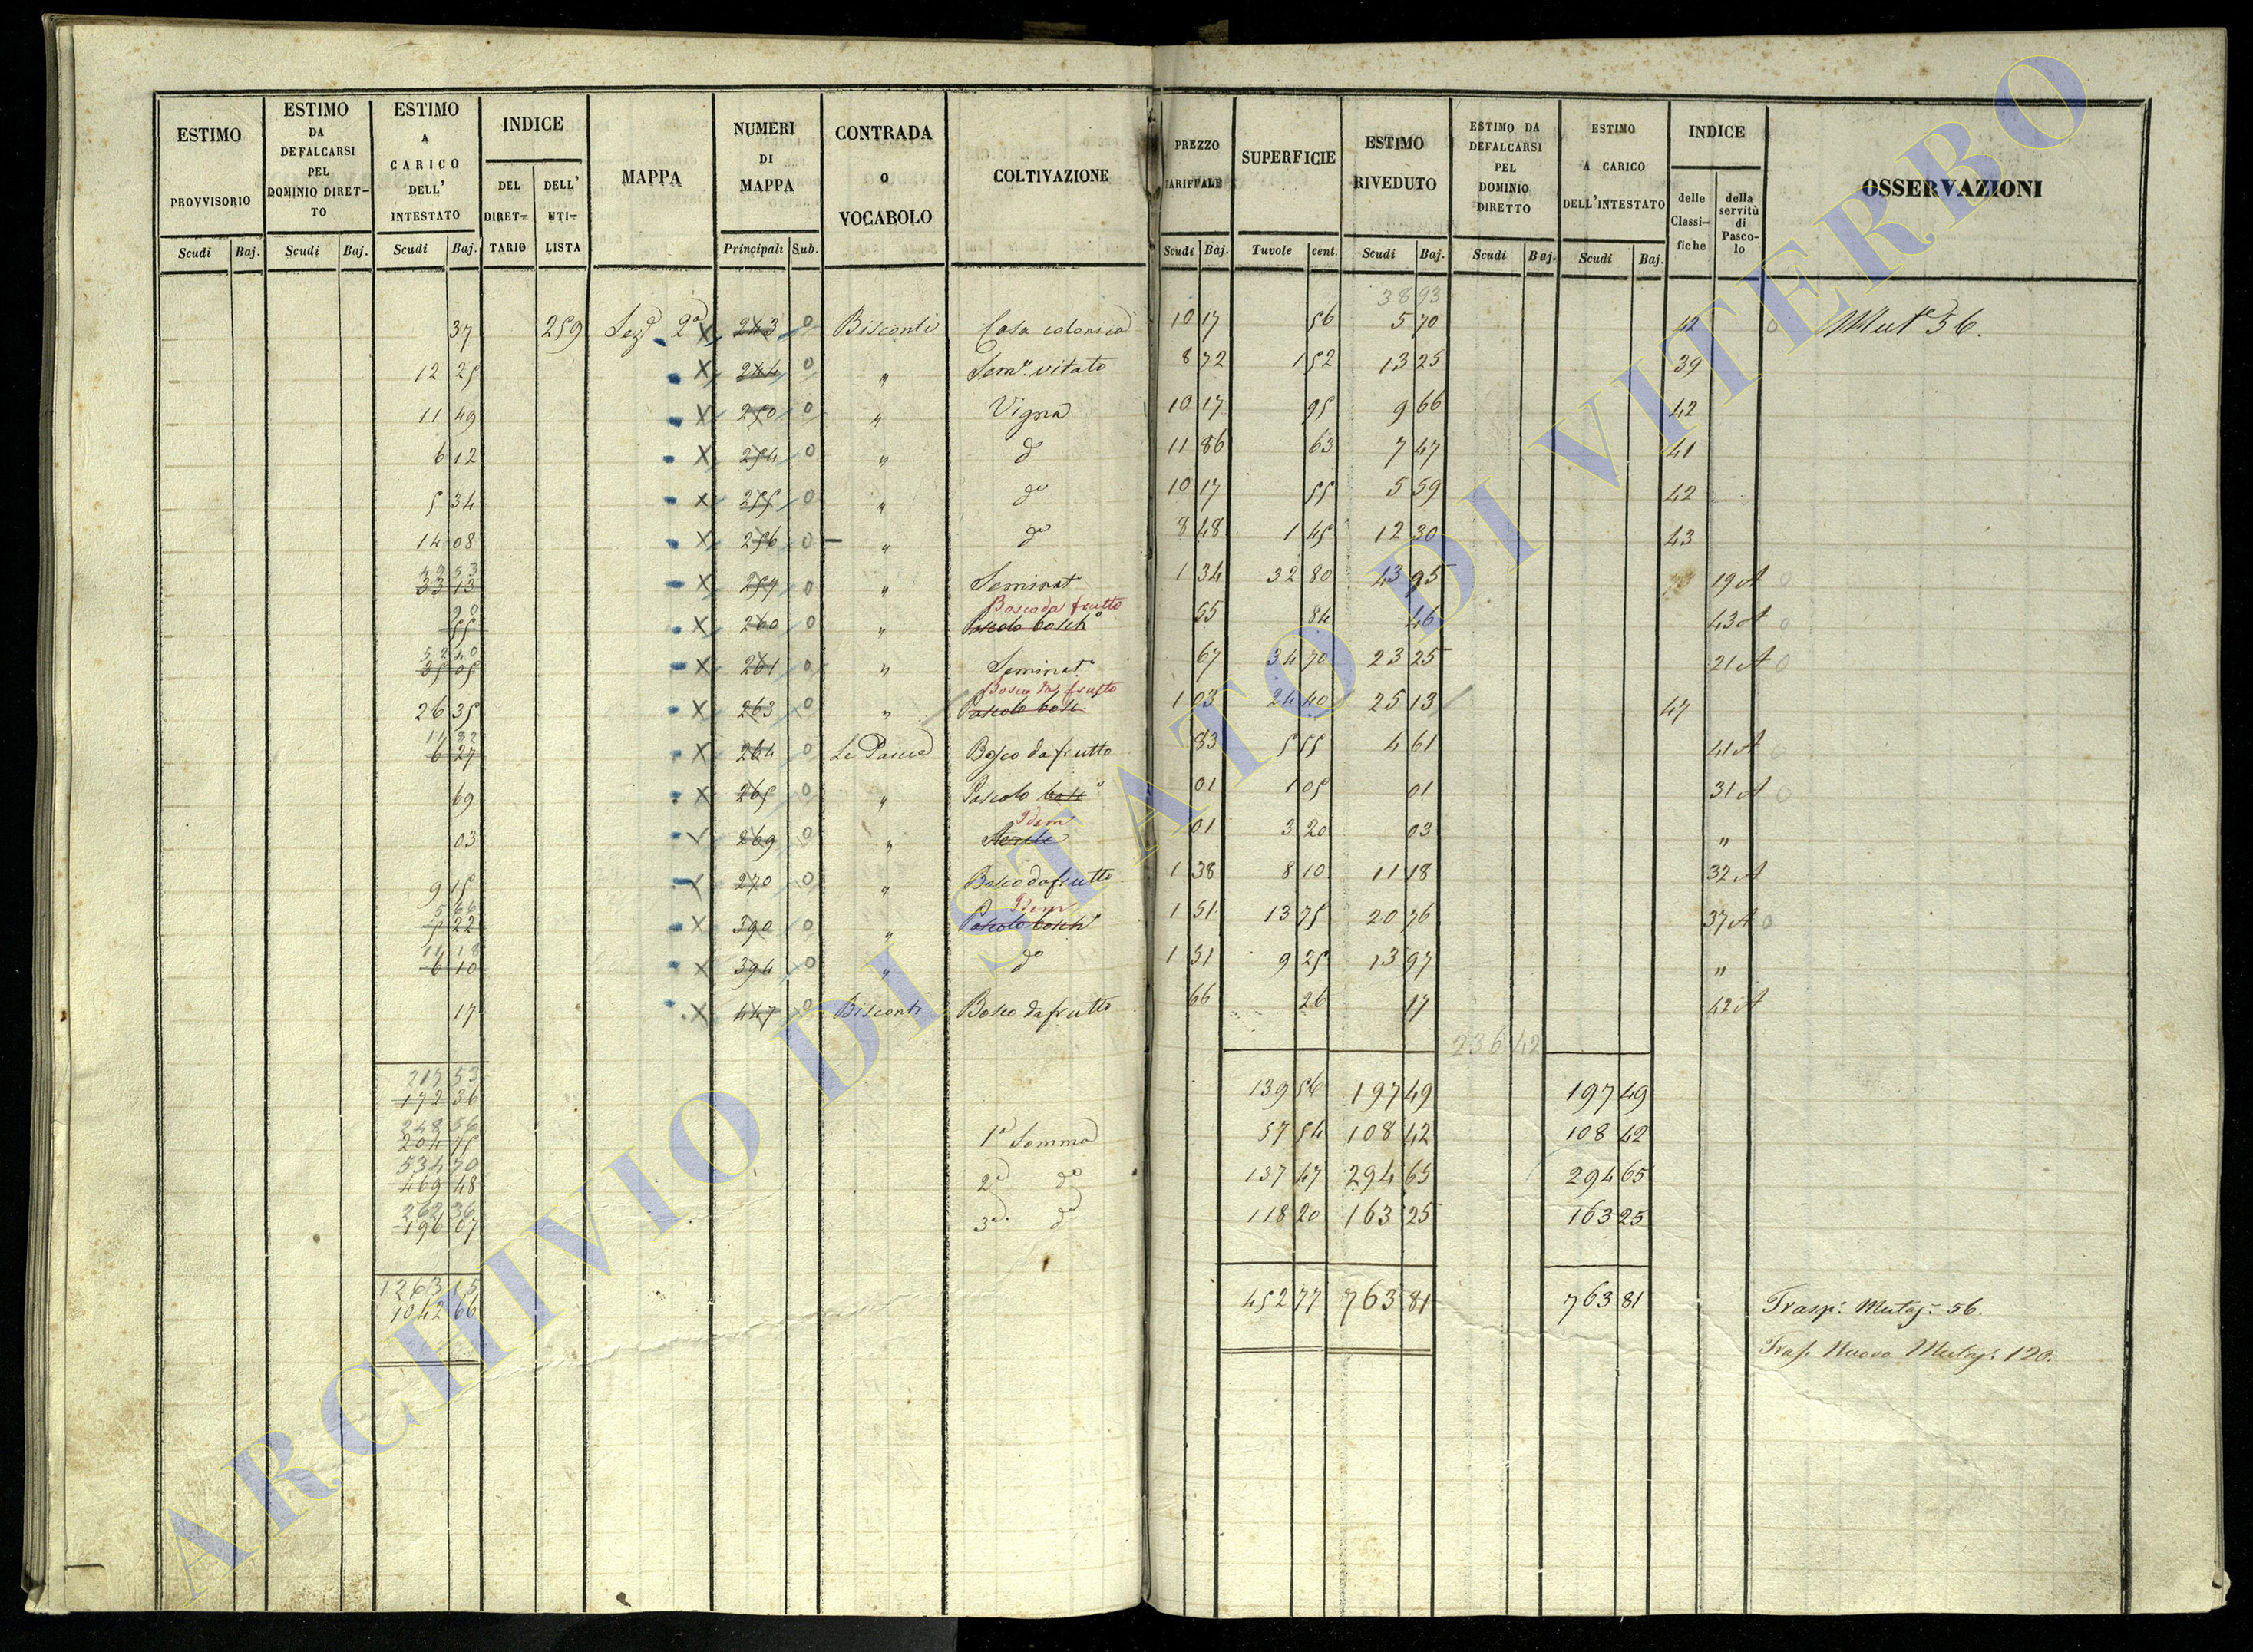 ESTIMO PROVVISORIO Scudi Baj.
ESTIMO DA DEFALCARSI PEL DOMINIO DIRET-TO Scudi Baj.
ESTIMO A CARICO DELL' INTESTATO Scudi Baj.
INDICE DEL DIRET-TARIO DELL' UTI-LISTA
MAPPA
NUMERI DI MAPPA Principali Sub.
CONTRADA o VOCABOLO
COLTIVAZIONE
PREZZO TARIFFALE Scudi Baj.
SUPERFICIE Tavole cent.
ESTIMO RIVEDUTO Scudi Baj.
ESTIMO DA DEFALCARSI PEL DOMINIO DIRETTO Scudi Baj.
ESTIMO A CARICO DELL'INTESTATO Scudi Baj.
INDICE delle Classi-fiche della servitù di Pasco-lo
OSSERVAZIONI
38 93
37 259 Sez.e 2a X 243 0 Bisconti Casa colonica 10 17 56 5 70 42 0 Mut.e 36.
12 25 X 244 0 " Sem.o vitato 8 72 1 52 13 25 39
11 49 X 250 0 " Vigna 10 17 95 9 66 42
6 12 X 254 0 " do 11 86 63 7 47 41
5 34 X 255 0 " do 10 17 55 5 59 42
14 08 X 256 0 " do 8 48 1 45 12 30 43
49 53
33 13 X 259 0 " Seminat. 1 34 32 80 43 95 19 A 0
Bosco da frutto
55 X 260 0 " Pascolo bosch.o 55 84 46 43 A 0
52 40
35 05 X 261 0 " Seminat.o 67 34 70 23 25 21 A 0
Bosco da frutto
26 35 X 263 0 " Pascolo bosc. 1 03 24 40 25 13 47
11 82
6 27 X 264 0 Le Pascia Bosco da frutto 83 5 55 4 61 41 A 0
69 X 265 0 " Pascolo bosc.o 01 1 05 01 31 A 0
Idem
03 X 269 0 " Sterile 01 3 20 03 "
9 15 X 270 0 " Bosco da frutto 1 38 8 10 11 18 32 A
Idem
5 22 X 390 0 " Pascolo bosch.o 1 51 13 75 20 76 37 A 0
11 18
6 10 X 394 0 " do 1 51 9 25 13 97 "
17 X 447 0 Bisconti Bosco da frutto 66 26 17 42 A
236 42
217 53
172 36 139 56 197 49 197 49
248 56
204 75 1a Somma 57 54 108 42 108 42
534 70
469 48 2a do 137 47 294 65 294 65
262 36
196 07 3a. do 118 20 163 25 163 25
1263 15
1042 66 452 77 763 81 763 81 Trasp: Mutaz: 56.
Trasp. Nuovo Mutaz: 120.
ARCHIVIO DI STATO DI VITERBO